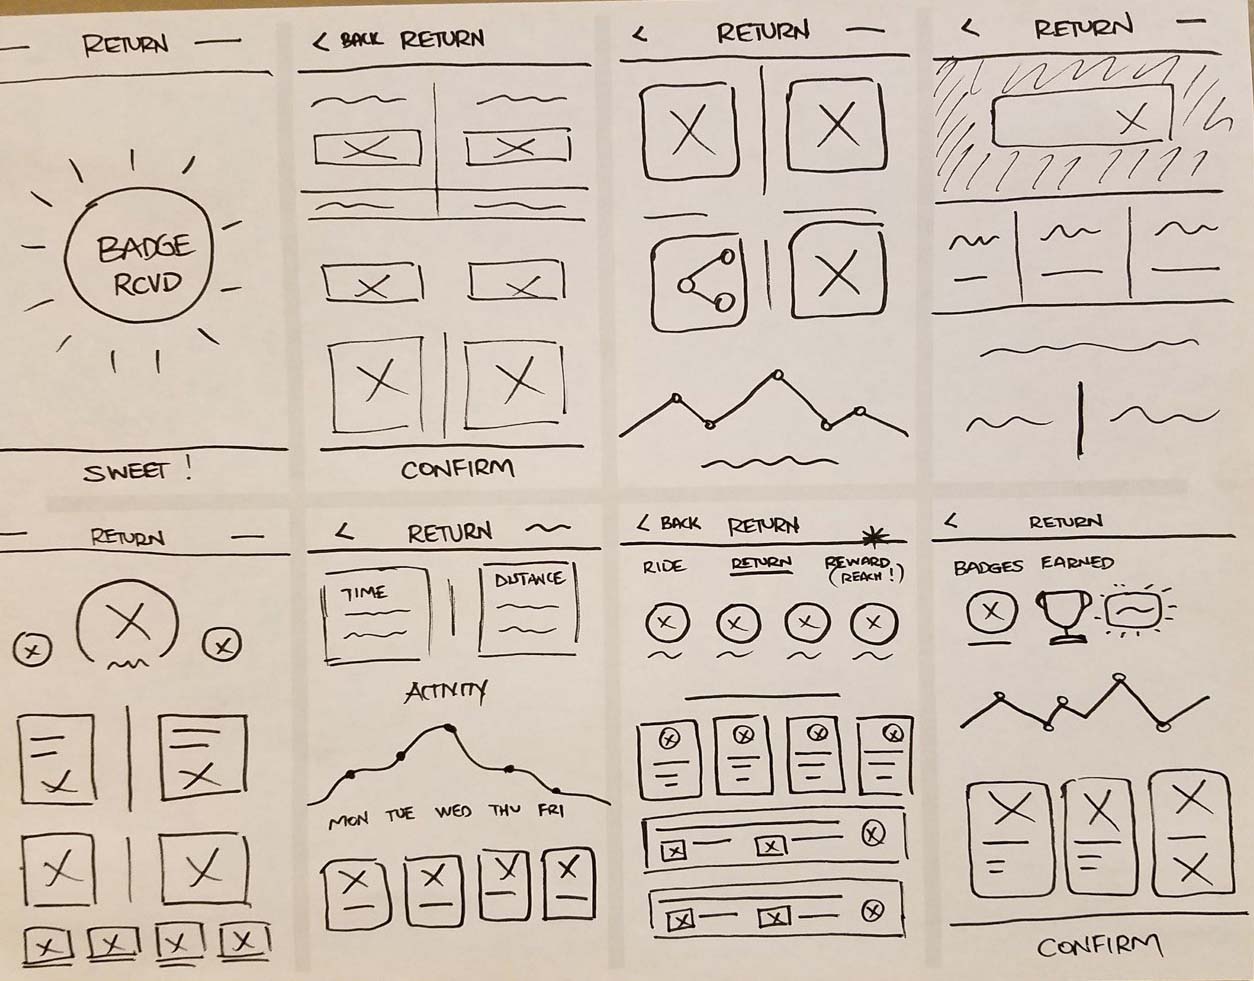 RETURN
BADGE
RCVD
SWEET!
< BACK RETURN
CONFIRM
< RETURN
< RETURN
RETURN
< RETURN
TIME
DISTANCE
ACTIVITY
MON TUE WED THU FRI
< BACK RETURN
RIDE RETURN REWARD
(REACH!)
< RETURN
BADGES EARNED
CONFIRM